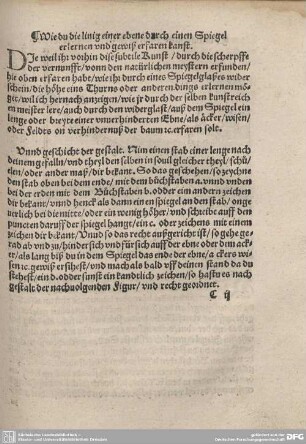 Wie du die linig einer ebene durch einen Spiegel
erlernen vnd gewiß erfaren kanst.
Die weil ihr vorhin dise subtile Kunst / durch die scherpffe
der vernunfft / vonn den natürlichen meystern erfunden /
die oben erfaren habe / wie ihr durch eines Spiegelglaßes wider
schein / die höhe eins Thurns oder anderen dings erlernen mö-
ge / will ich hernach anzeygen / wie jr durch der selben kunstreich
en meister lere / auch durch den widerglast / auß dem Spiegel ein
lenge oder breyte einer vnuerhinderten Ebne / als äcker / wisen /
oder feldts on verhindernuß der baum ꝛc. erfaren solt.
Vnnd geschicht der gestalt. Nim einen stab einer lenge nach
deinem gefalln / vnd theyl den selben in souil gleicher theyl / schů
/ oder ander maß / dir bekant. So das geschehen / so zeychne
den stab oben bei dem ende / mit dem büchstaben a. vnnd vnden
bei der erden mit dem Büchstaben b. oder ein andern zeichen
dir bekant / vnnd henck als dann ein en spiegel an den stab / onge
uerlich bei die mitte / oder ein wenig höher / vnd schreibe auff den
puncten darauff der spiegel hangt / ein c. oder zeichens mit einem
zeichen dir bekant / Vnnd so das recht außgericht ist / so gehe ge-
rad ab vnd zu / hinder sich vnd für sich auff der ebne oder dem ack-
er / als lang biß du in dem Spiegel das ende der ebne / ackers wi
sen ꝛc. gewiß ersihest / vnd nach als bald vff deinen stand da du
stehest / ein d. oder sunst ein kandtlich zeichen / so hastu es nach
gestalt der nachuolgenden Figur / vnd recht geordnet.
C ij